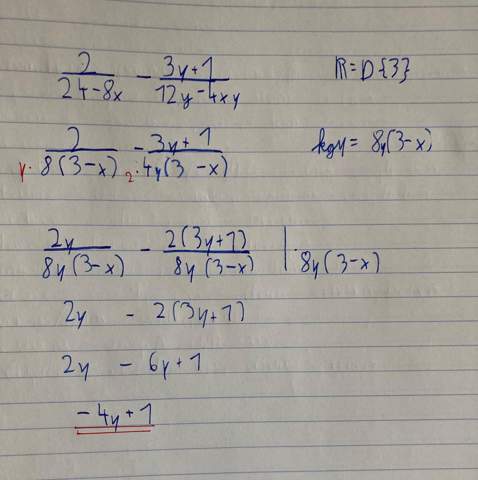 2/(24-8x) - (3y+1)/(12y-4xy) R=D{3}
y· 2/(8(3-x)) - 2· (3y+1)/(4y(3-x)) kgV= 8y(3-x)
2y/(8y(3-x)) - 2(3y+1)/(8y(3-x)) | · 8y(3-x)
2y - 2(3y+1)
2y - 6y+1
-4y+1